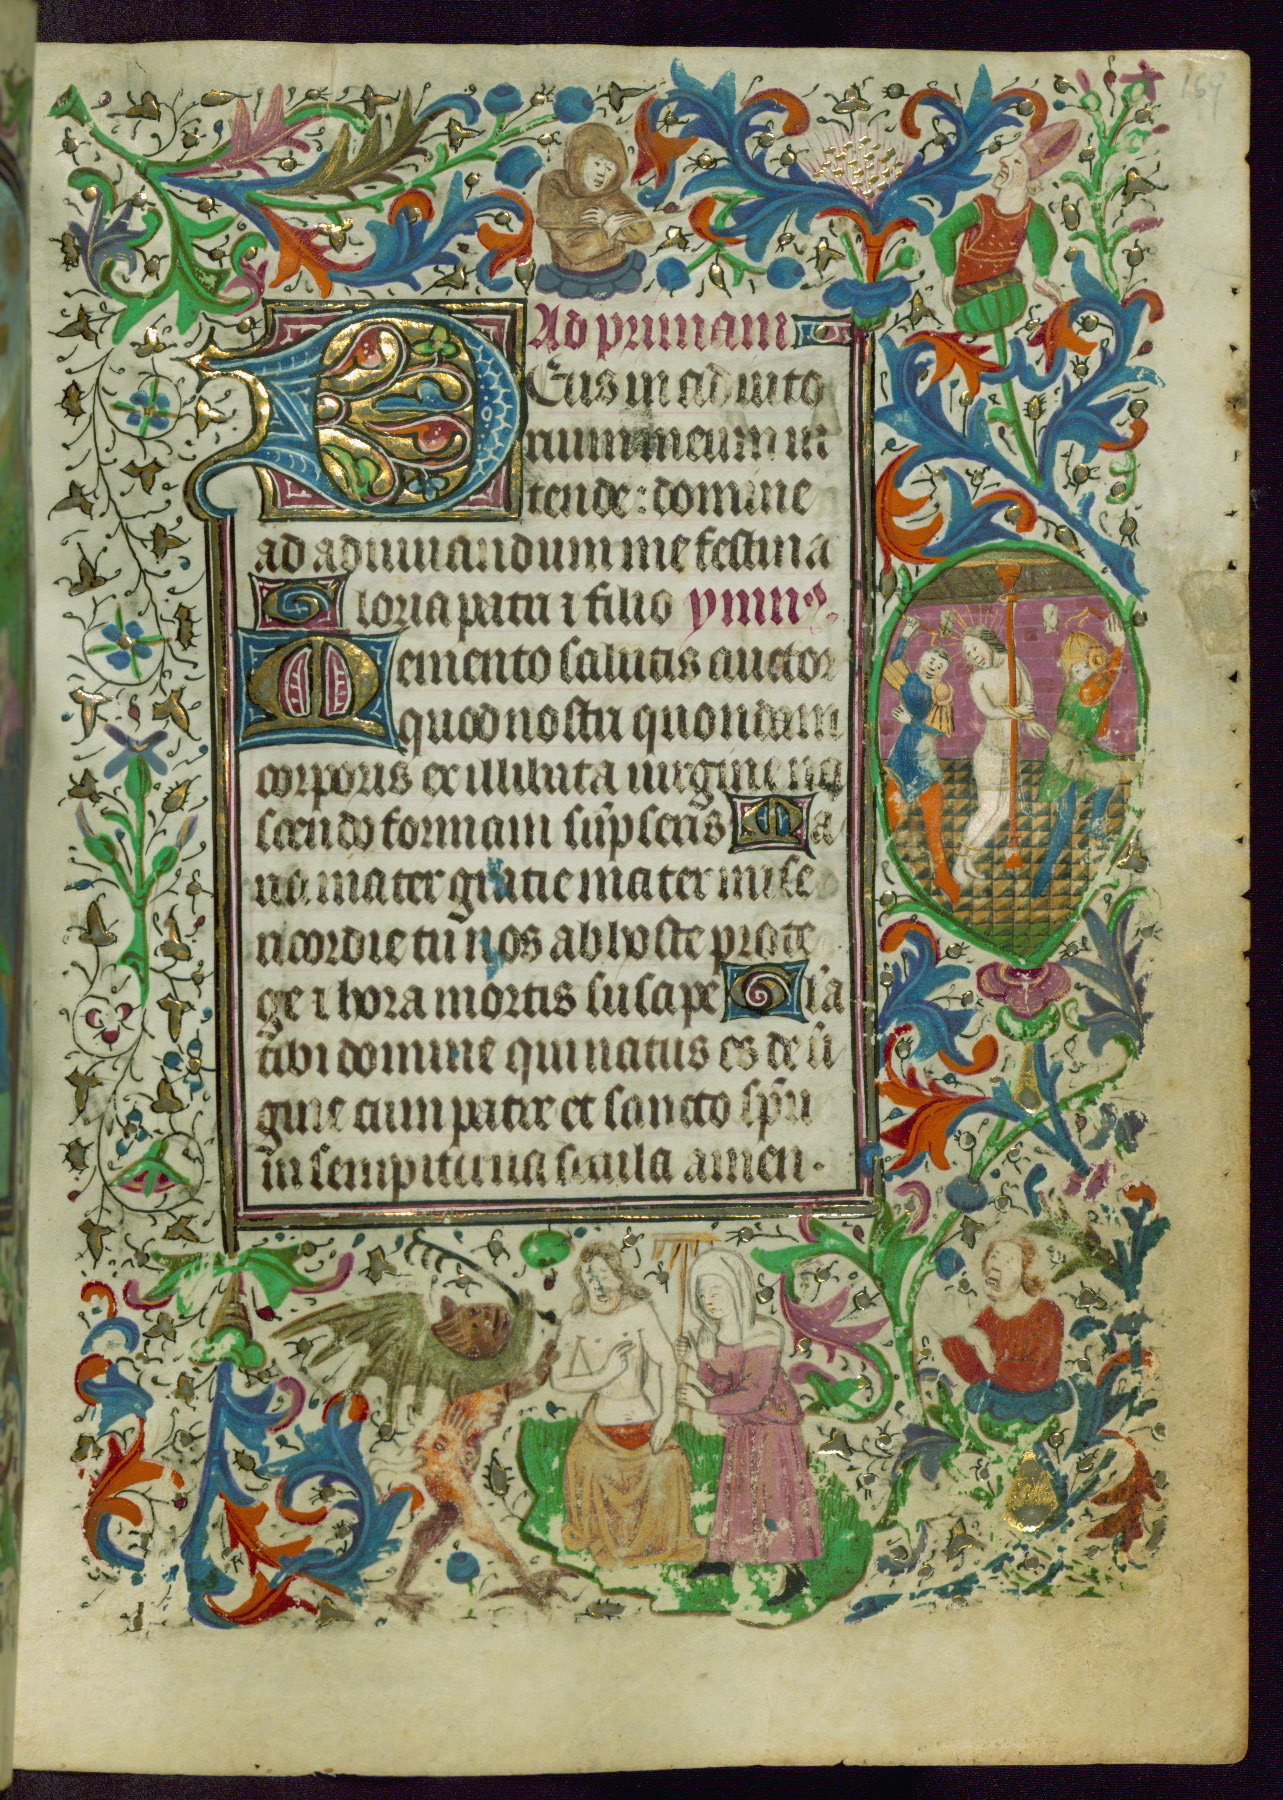 Ad primam
Deus in adiuto
rium meum in
tende: domine
ad adiuuandum me festina
Gloria patri ⁊ filio ymnꝰ.
Memento salutis auctor
quod nostri quondam
corporis ex illibata uirgine na
scendo formam sūpseris Ma
ria mater gratie mater mise
ricordie tu nos ab hoste prote
ge ⁊ hora mortis suscipe Gl̄a
tibi domine qui natus es de ūi
gine cum patre et sancto sp̄u
in sempiterna secula amen.
169